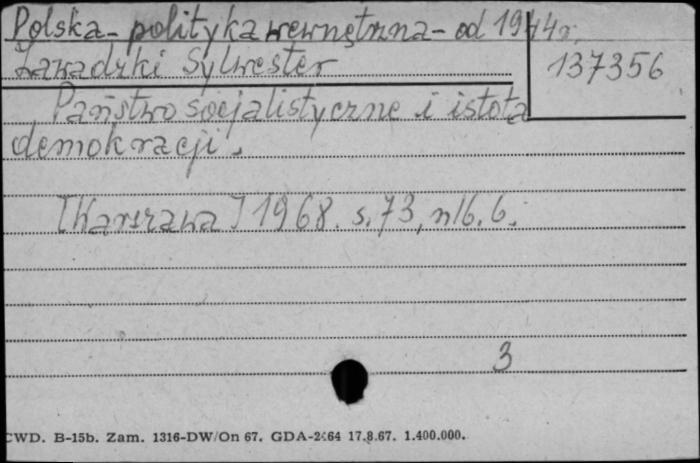 Polska - polityka wewnętrzna - od 1944r.
137356
Zawadzki Sylwester
Państwo socjalistyczne i istota
demokracji.
[Warszawa] 1968. s. 73, nlb. 6.
3
CWD. B-15b. Zam. 1316-DW/On 67. GDA-2464 17.8.67. 1.400.000.